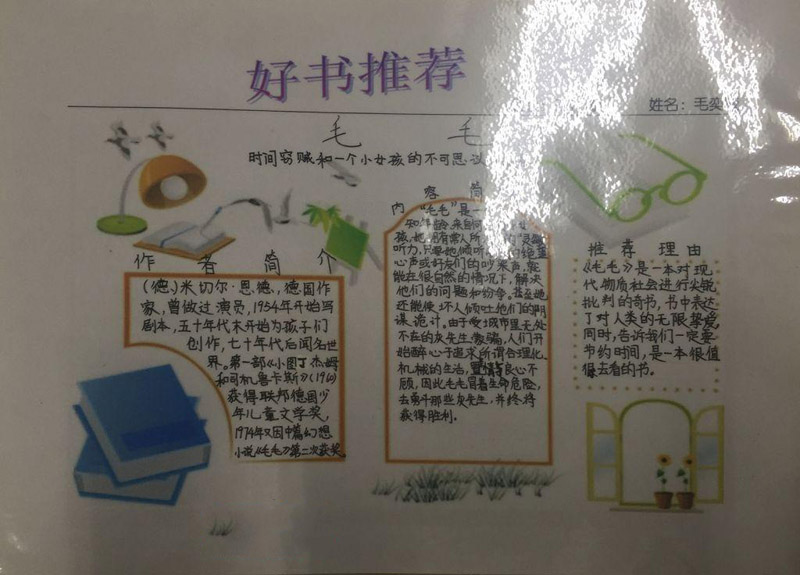 好书推荐
姓名：毛奕
毛 毛
时间窃贼和一个小女孩的不可思议
作者简介
(德)米切尔·恩德，德国作
家，曾做过演员，1954年开始写
剧本，五十年代末开始为孩子们
创作，七十年代后闻名世
界。第一部《小图丁杰姆
和司机鲁卡斯》(1960)
获得联邦德国少
年儿童文学奖，
1974年又因中篇幻想
小说《毛毛》第二次获奖。
内容简
"毛毛"是一
知年龄，来自何
孩，她拥有常人所
听力，只要她倾听
心声或好友们的吵架声，就
能在很自然的情况下，解决
他们的问题和纷争。甚至她
还能使坏人倾吐他们的阴
谋诡计。由于受城市里无处
不在的灰先生蒙骗，人们开
始醉心于追求所谓合理化、
机械的生活，置情良心不
顾，因此毛毛冒着生命危险，
去勇斗那些灰先生，并终将
获得胜利。
推荐理由
《毛毛》是一本对现
代物质社会进行尖锐
批判的奇书，书中表达
了对人类的无限挚爱，
同时，告诉我们一定要
节约时间，是一本很值
得去看的书。